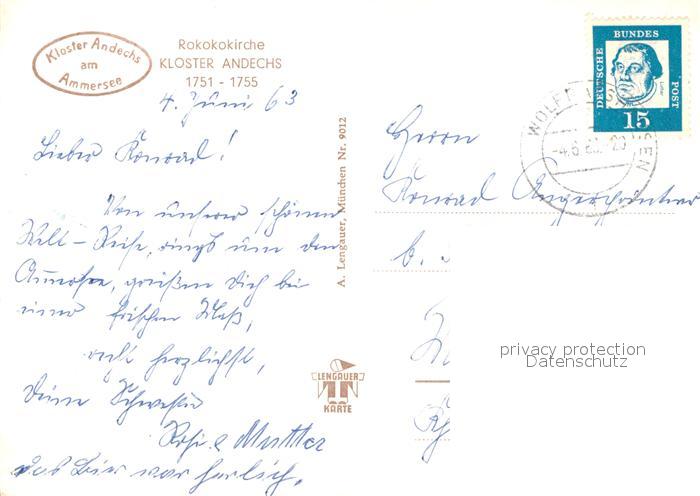 Kloster Andechs
am
Ammersee
Rokokokirche
KLOSTER ANDECHS
1751 - 1755
4. Juni 63
Lieber Konrad!
Von unserer schönen
Welt-Reise, rings um den
Ammersee, grüßen Dich bei
einer frischen Maß,
recht herzlichst,
Deine Schwester
Rosi & Mutter
das Bier war herlich.
A. Lengauer, München Nr. 9012
LENGAUER
KARTE
DEUTSCHE BUNDES POST
Luther
15
WOLFRATSHAUSEN
-4.6.63.-20
Herrn
Konrad
b.
privacy protection
Datenschutz